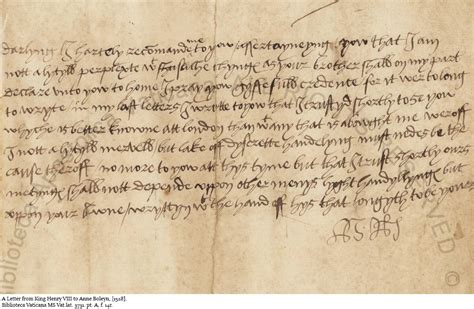 darlyng I hartely recomande me to yow assertaynyng yow that I am
nott a lytyll perplexte wt suche thynges as your brother shall on my part
declare unto yow to whome I pray yow gyffe full credence for it wer to long
to wryte in my last letters I wrotte to yow that I trustyd shortly to se yow
whyche is better knowne att london than wt any that is abought me weroff
I nott a lytyll mervell but lake off dyscrette handelyng must nedes be the
cause theroff no more to yow att thys tyme but that I trust shortly ours
metyngs shall nott depende uppon other menys lyght handyllyngs but
uppon your awne wryttyn wt the hand off hym that longyth to be yours
A Letter from King Henry VIII to Anne Boleyn, [1528].
Biblioteca Vaticana MS Vat.lat. 3731 pt. A, f. 14r.